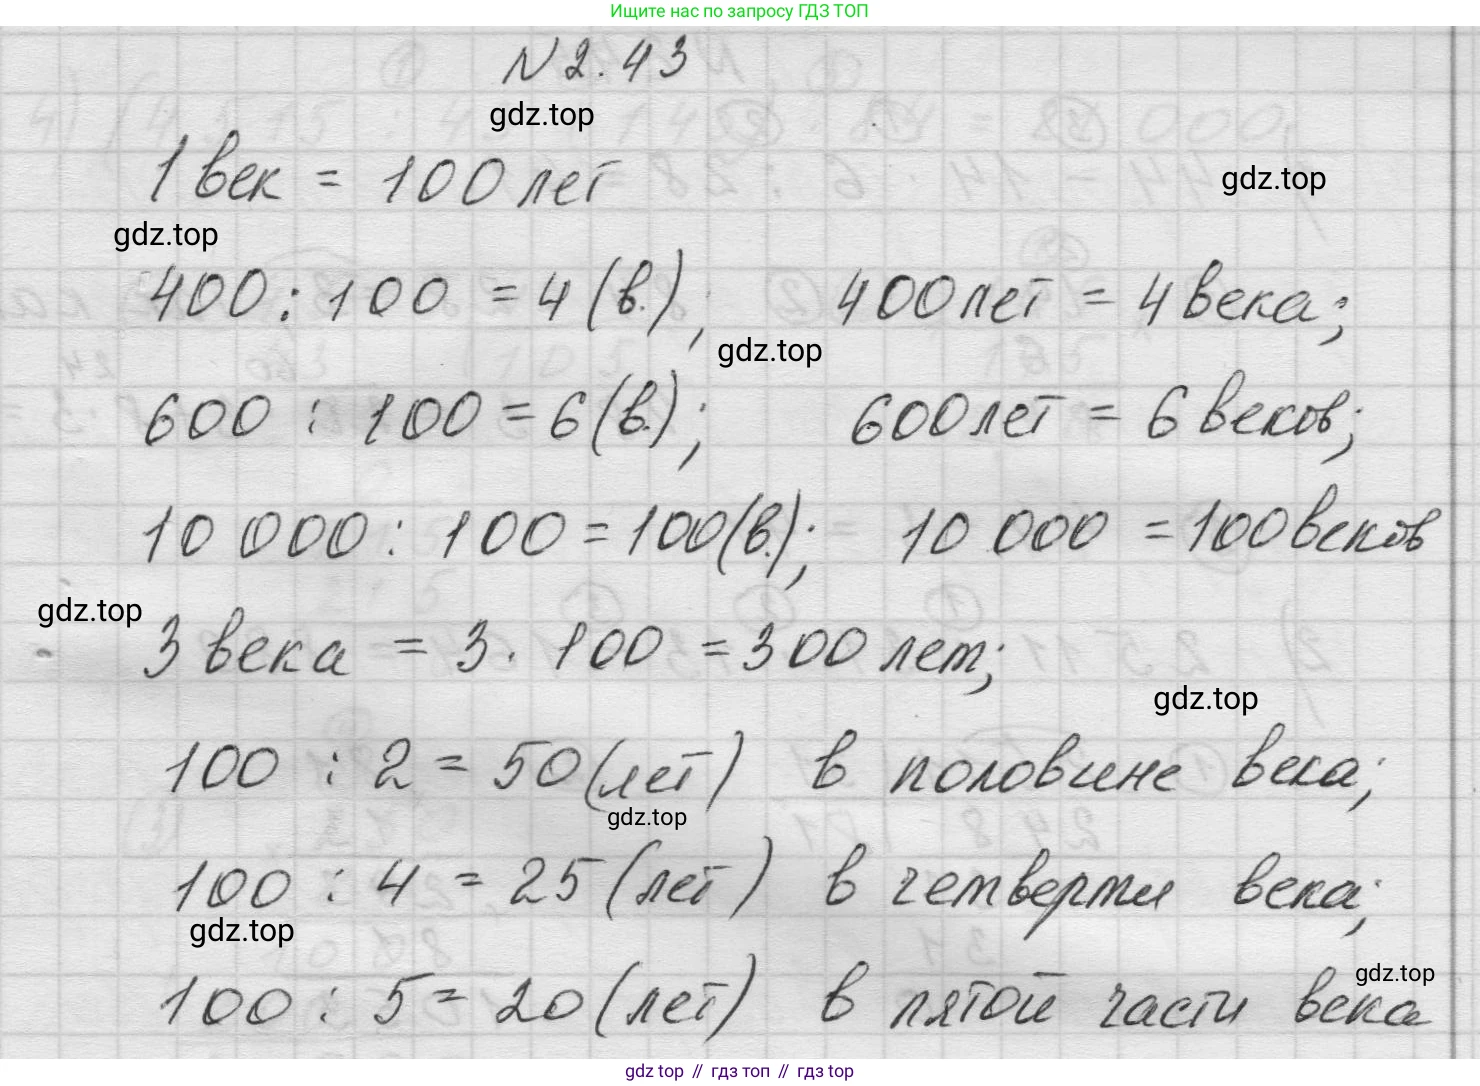 Ищите нас по запросу ГДЗ ТОП
N 2.43
gdz.top
1 век = 100 лет
gdz.top
gdz.top
400 : 100 = 4 (в.); 400 лет = 4 века;
gdz.top
600 : 100 = 6 (в.); 600 лет = 6 веков;
10 000 : 100 = 100 (в.); 10 000 = 100 веков
gdz.top
3 века = 3 · 100 = 300 лет;
gdz.top
100 : 2 = 50 (лет) в половине века;
gdz.top
100 : 4 = 25 (лет) в четверти века;
gdz.top
gdz.top
100 : 5 = 20 (лет) в пятой части века
gdz top // гдз топ // гдз top